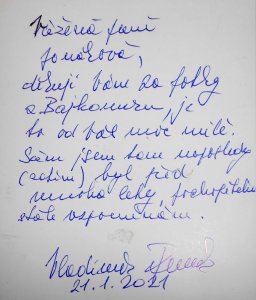 Vážená paní
Tomášková,
děkuji Vám za fotky
z Bajkonuru, je
to od Vás moc milé.
Sám jsem tam naposledy
(aktivně) byl před
mnoha lety, pochopitelně
stále vzpomínám.
Vladimír
21.1.2021